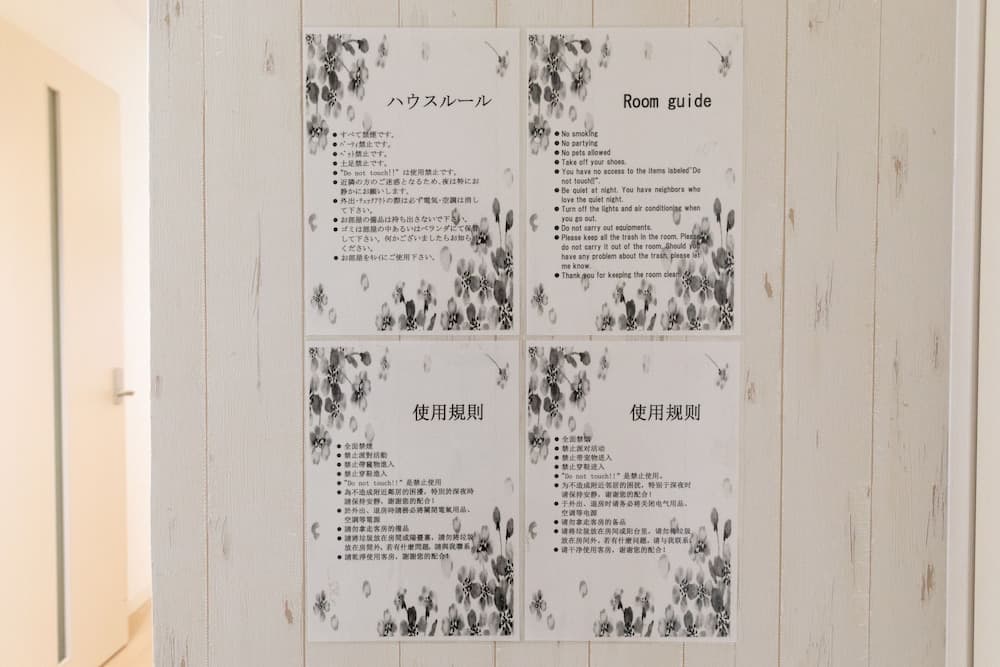 ハウスルール
● すべて禁煙です。
● パーティ禁止です。
● ペット禁止です。
● 土足禁止です。
● "Do not touch!!" は使用禁止です。
● 近隣の方のご迷惑となるため、夜は特にお
静かにお願いします。
● 外出・チェックアウトの際は必ず電気・空調は消し
て下さい。
● お部屋の備品は持ち出さないで下さい。
● ゴミは部屋の中あるいはベランダにて保管
して下さい。何かございましたらお知らせ
ください。
● お部屋をキレイにご使用下さい。
Room guide
● No smoking
● No partying
● No pets allowed
● Take off your shoes.
● You have no access to the items labeled"Do
not touch!!".
● Be quiet at night. You have neighbors who
love the quiet night.
● Turn off the lights and air conditioning when
you go out.
● Do not carry out equipments.
● Please keep all the trash in the room. Please
do not carry it out of the room. Should you
have any problem about the trash, please let
me know.
● Thank you for keeping the room clean.
使用規則
● 全面禁煙
● 禁止派對活動
● 禁止帶寵物進入
● 禁止穿鞋進入
● "Do not touch!!" 是禁止使用
● 為不造成附近鄰居的困擾，特別於深夜時
請保持安靜，謝謝您的配合！
● 於外出、退房時請務必將關閉電氣用品、
空調等電源
● 請勿拿走客房的備品
● 請將垃圾放在房間或陽臺裏，請勿將垃圾
放在房間外，若有什麼問題，請與我聯系
● 請乾淨使用客房，謝謝您的配合！
使用规则
● 全面禁烟
● 禁止派对活动
● 禁止带宠物进入
● 禁止穿鞋进入
● "Do not touch!!" 是禁止使用。
● 为不造成附近邻居的困扰，特别于深夜时
请保持安静，谢谢您的配合！
● 于外出、退房时请务必将关闭电气用品、
空调等电源
● 请勿拿走客房的备品
● 请将垃圾放在房间或阳台里，请勿将垃圾
放在房间外，若有什么问题，请与我联系
● 请干净使用客房，谢谢您的配合！